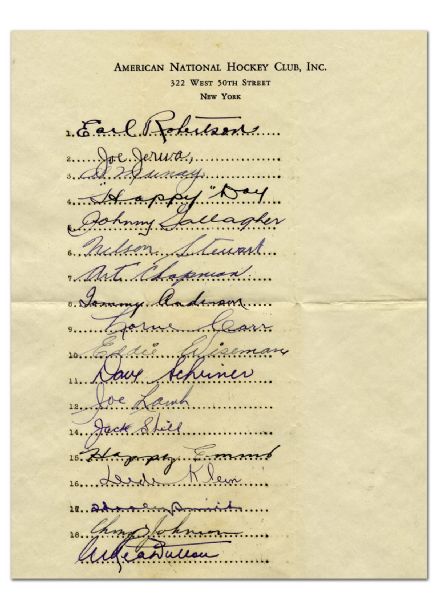 AMERICAN NATIONAL HOCKEY CLUB, INC.
322 WEST 50TH STREET
NEW YORK
1. Earl Robertson
2. Joe Jerwa
3. Al Murray
4. "Happy" Day
5. Johnny Gallagher
6. Nelson Stewart
7. Art Chapman
8. Tommy Anderson
9. Lorne Carr
10. Eddie Wiseman
11. Dave Schriner
12. Joe Lamb
14. Jack Shill
15. Happy Emms
16. Lude Klein
17.
18. Ching Johnson